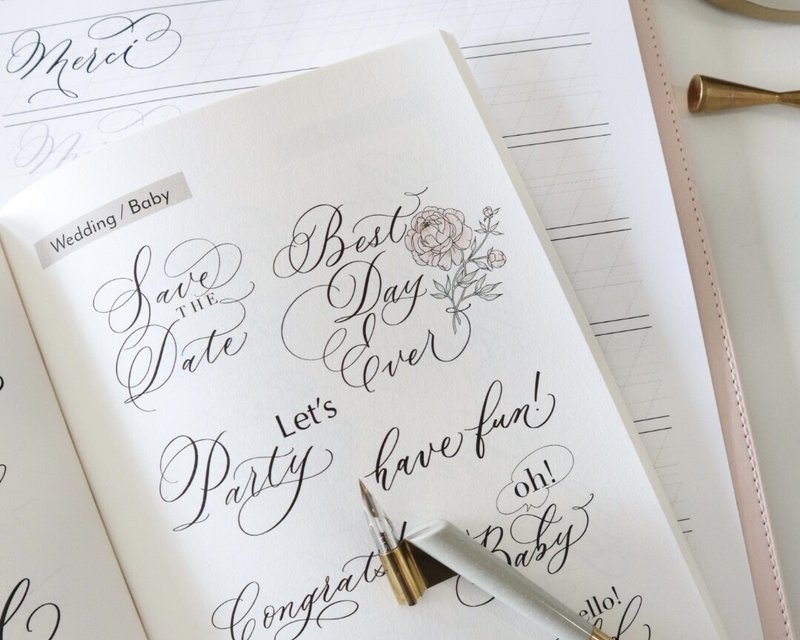 Merci
Wedding / Baby
Save
THE
Date
Best
Day
Ever
Let's
Party
have fun!
oh!
Baby
Congrats